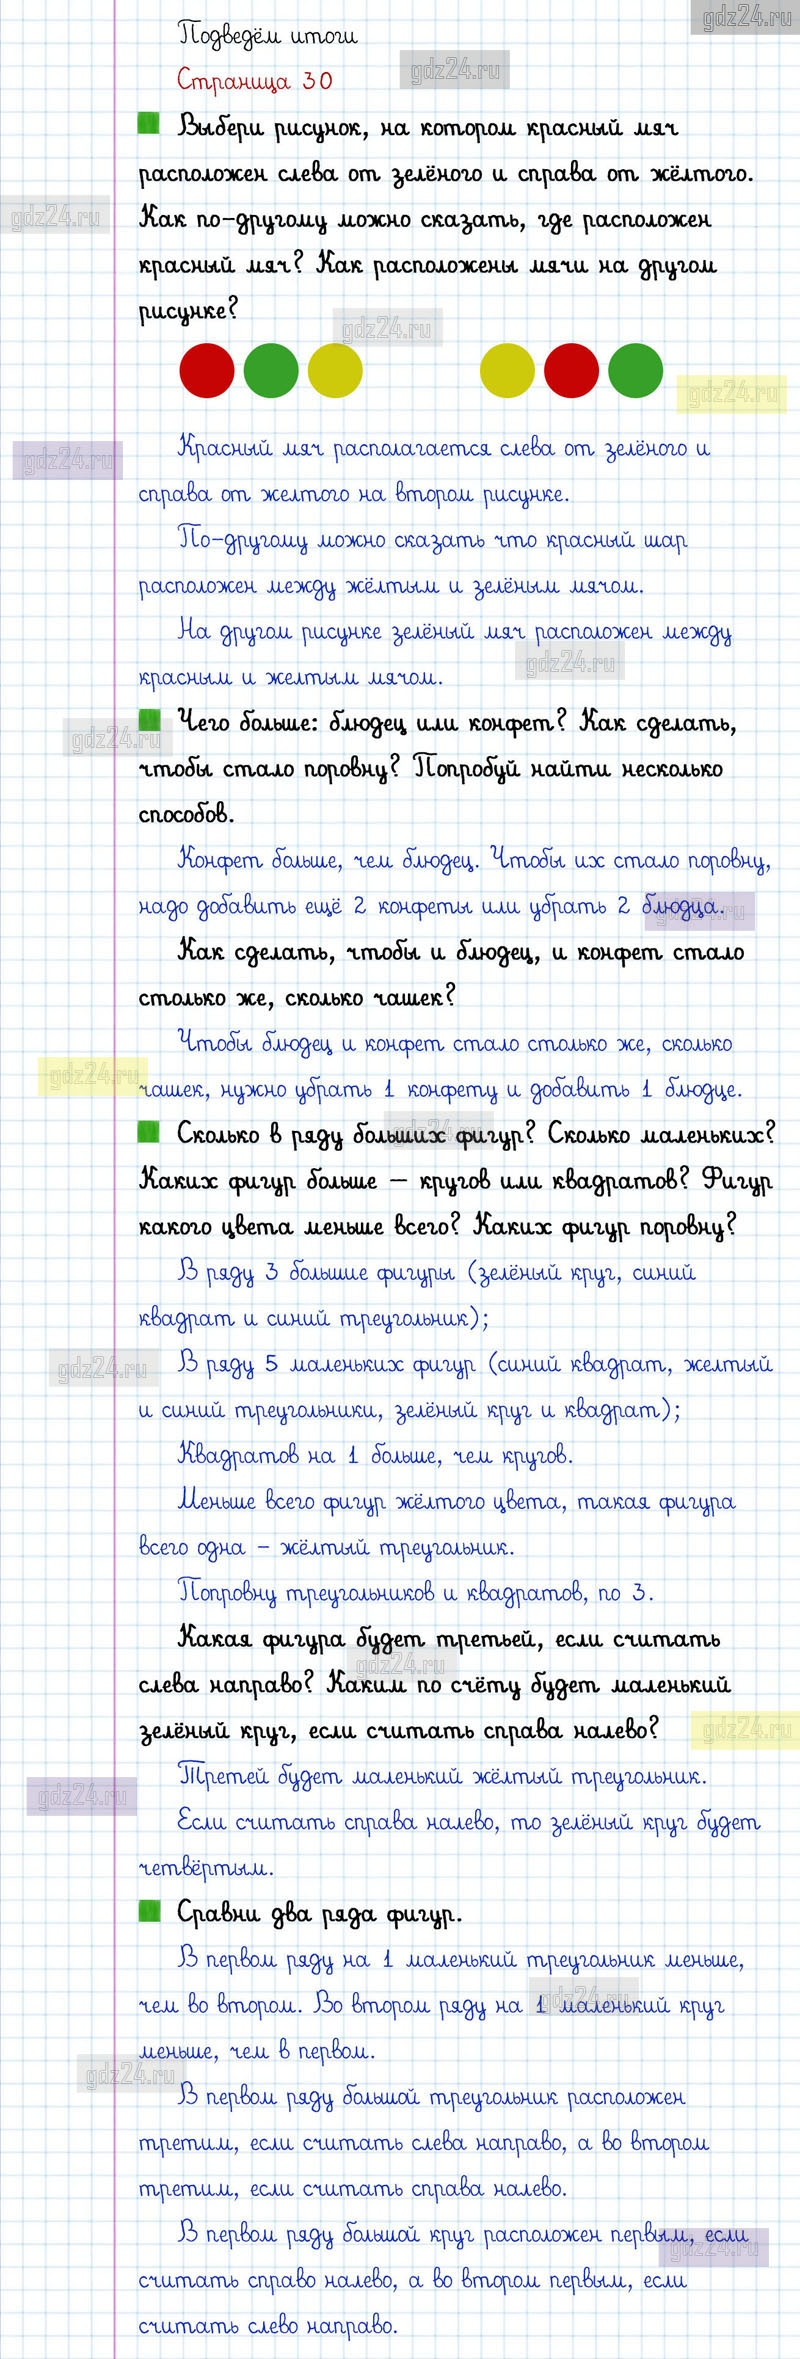 gdz24.ru
Подведём итоги
gdz24.ru
Страница 30
Выбери рисунок, на котором красный мяч
расположен слева от зелёного и справа от жёлтого.
gdz24.ru
Как по-другому можно сказать, где расположен
красный мяч? Как расположены мячи на другом
рисунке?
gdz24.ru
gdz24.ru
Красный мяч располагается слева от зелёного и
gdz24.ru
справа от желтого на втором рисунке.
По-другому можно сказать что красный шар
расположен между жёлтым и зелёным мячом.
На другом рисунке зелёный мяч расположен между
gdz24.ru
красным и желтым мячом.
Чего больше: блюдец или конфет? Как сделать,
gdz24.ru
чтобы стало поровну? Попробуй найти несколько
способов.
Конфет больше, чем блюдец. Чтобы их стало поровну,
надо добавить ещё 2 конфеты или убрать 2 блюдца.
gdz24.ru
Как сделать, чтобы и блюдец, и конфет стало
столько же, сколько чашек?
Чтобы блюдец и конфет стало столько же, сколько
gdz24.ru
чашек, нужно убрать 1 конфету и добавить 1 блюдце.
gdz24.ru
Сколько в ряду больших фигур? Сколько маленьких?
Каких фигур больше – кругов или квадратов? Фигур
какого цвета меньше всего? Каких фигур поровну?
В ряду 3 большие фигуры (зелёный круг, синий
квадрат и синий треугольник);
gdz24.ru
В ряду 5 маленьких фигур (синий квадрат, желтый
и синий треугольники, зелёный круг и квадрат);
Квадратов на 1 больше, чем кругов.
Меньше всего фигур жёлтого цвета, такая фигура
всего одна – жёлтый треугольник.
Попровну треугольников и квадратов, по 3.
Какая фигура будет третьей, если считать
gdz24.ru
слева направо? Каким по счёту будет маленький
зелёный круг, если считать справа налево?
gdz24.ru
Третей будет маленький жёлтый треугольник.
gdz24.ru
Если считать справа налево, то зелёный круг будет
четвёртым.
Сравни два ряда фигур.
В первом ряду на 1 маленький треугольник меньше,
чем во втором. Во втором ряду на 1 маленький круг
gdz24.ru
меньше, чем в первом.
gdz24.ru
В первом ряду большой треугольник расположен
третим, если считать слева направо, а во втором
третим, если считать справа налево.
В первом ряду большой круг расположен первым, если
gdz24.ru
считать справо налево, а во втором первым, если
считать слево направо.